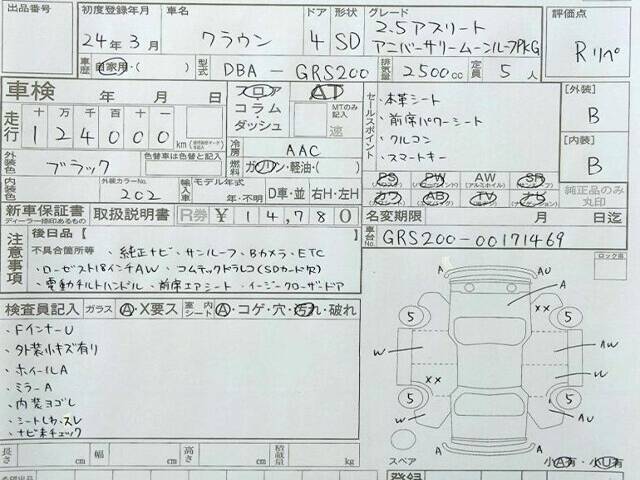 出品番号 初度登録年月 車名 ドア 形状 グレード 評価点
24年3月 クラウン 4 SD 2.5アスリート
アニバーサリームーンルーフPKG
R リペ
車歴 自家用・( ) 型式 DBA-GRS200 排気量 2500cc 定員 5人
車検 年 月 日
フロア AT
コラム・ダッシュ
MTのみ記入
速
セールスポイント
・本革シート
・前席パワーシート
・クルコン
・スマートキー
[外装]
B
[内装]
B
走行 十万 万 千 百 十 一
124000 km
冷房 AAC
外装色 ブラック
色替車は色替と記入
燃料 ガソリン・軽油・( )
内装色 外装カラーNo. 202
輸入車 モデル年式 年・不明 D車・並 右H・左H
PS PW AW SR
カワ AB TV ナビ
純正品のみ丸印
新車保証書 取扱説明書 R券 ¥14,780
ディーラー捺印あるもの
名変期限 月 日迄
注意事項
後日品【 】
不具合箇所等
・純正ナビ・サンルーフ・Bカメラ・ETC
・ローゼスト18インチAW ・コムテックドラレコ(SDカード欠)
・電動チルトハンドル・前席エアシート・イージークローザードア
車台No. GRS200-00171469
ロック名
検査員記入 ガラス A・X要ス 室内シート A・コゲ・穴・汚れ・破れ
・FインナーU
・外装小キズ有り
・ホイールA
・ミラーA
・内装ヨゴレ
・シートしわ、スレ
・ナビ未チェック
A AU
A
5 5
xx
W AW
W
xx
5 5
W AU
A A
スペア 小A有・小U有
長さ cm 幅 cm 高さ cm 積載量 kg
【出品店申告欄】
登録